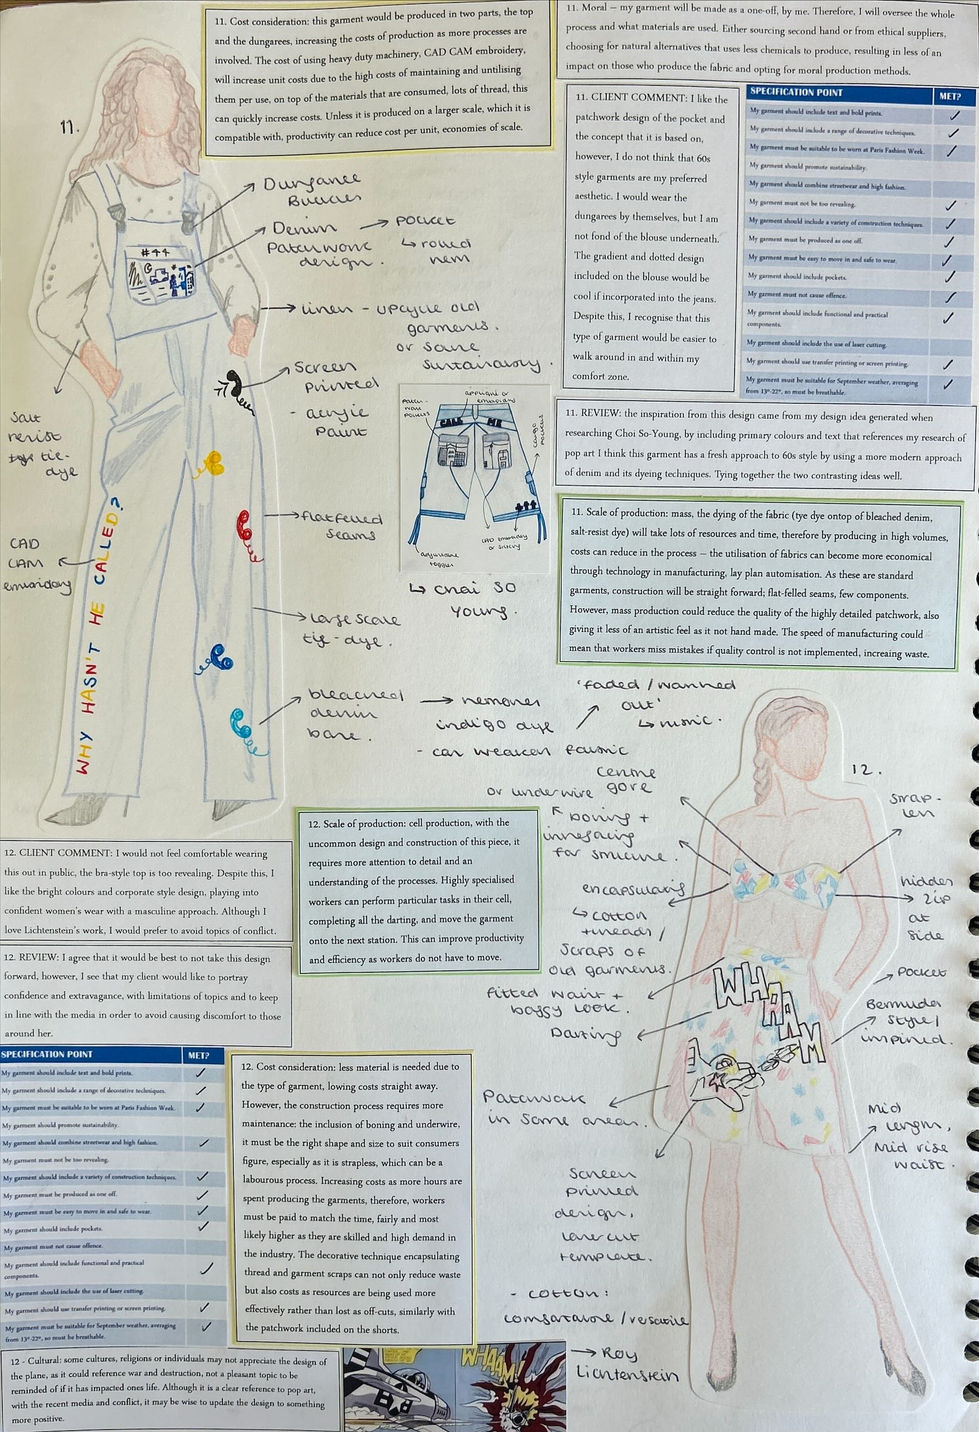 11. Cost consideration: this garment would be produced in two parts, the top
and the dungarees, increasing the costs of production as more processes are
involved. The cost of using heavy duty machinery, CAD CAM embroidery,
will increase unit costs due to the high costs of maintaining and untilising
them per use, on top of the materials that are consumed, lots of thread, this
can quickly increase costs. Unless it is produced on a larger scale, which it is
compatible with, productivity can reduce cost per unit, economies of scale.
11. Moral – my garment will be made as a one-off, by me. Therefore, I will oversee the whole
process and what materials are used. Either sourcing second hand or from ethical suppliers,
choosing for natural alternatives that uses less chemicals to produce, resulting in less of an
impact on those who produce the fabric and opting for moral production methods.
11. CLIENT COMMENT: I like the
patchwork design of the pocket and
the concept that it is based on,
however, I do not think that 60s
style garments are my preferred
aesthetic. I would wear the
dungarees by themselves, but I am
not fond of the blouse underneath.
The gradient and dotted design
included on the blouse would be
cool if incorporated into the jeans.
Despite this, I recognise that this
type of garment would be easier to
walk around in and within my
comfort zone.
SPECIFICATION POINT MET?
My garment should include text and bold prints. ✓
My garment should include a range of decorative techniques. ✓
My garment must be suitable to be worn at Paris Fashion Week. ✓
My garment should promote sustainability.
My garment should combine streetwear and high fashion.
My garment must not be too revealing. ✓
My garment should include a variety of construction techniques. ✓
My garment must be produced as one off. ✓
My garment must be easy to move in and safe to wear. ✓
My garment should include pockets. ✓
My garment must not cause offence. ✓
My garment should include functional and practical
components. ✓
My garment should include the use of laser cutting.
My garment should use transfer printing or screen printing. ✓
My garment must be suitable for September weather, averaging
from 13°-22°, so must be breathable. ✓
11. REVIEW: the inspiration from this design came from my design idea generated when
researching Choi So-Young, by including primary colours and text that references my research of
pop art I think this garment has a fresh approach to 60s style by using a more modern approach
of denim and its dyeing techniques. Tying together the two contrasting ideas well.
11. Scale of production: mass, the dying of the fabric (tye dye ontop of bleached denim,
salt-resist dye) will take lots of resources and time, therefore by producing in high volumes,
costs can reduce in the process – the utilisation of fabrics can become more economical
through technology in manufacturing, lay plan automisation. As these are standard
garments, construction will be straight forward; flat-felled seams, few components.
However, mass production could reduce the quality of the highly detailed patchwork, also
giving it less of an artistic feel as it not hand made. The speed of manufacturing could
mean that workers miss mistakes if quality control is not implemented, increaing waste.
11.
#44
Dungaree
Buckles
Denim → pocket
Patchwork
design.
↳ rolled
hem
linen - upcycle old
garments.
or source
sustainably.
Screen
printed
- acrylic
paint
Salt
resist
tye tie-
dye
CAD
CAM
embroidery
WHY HASN'T HE CALLED?
flatfelled
seams
CALL ME
Patch-
work
pockets
appliqué or
embroidery
cargo
pockets
adjustable
toggles
CAD embroidery
or
↳ Choi SO
young.
large scale
tie-dye.
bleached
denim
base.
→ removes
indigo dye
- can weaken fabric
'faded/washed
out'
12. CLIENT COMMENT: I would not feel comfortable wearing
this out in public, the bra-style top is too revealing. Despite this, I
like the bright colours and corporate style design, playing into
confident women's wear with a masculine approach. Although I
love Lichtenstein's work, I would prefer to avoid topics of conflict.
12. REVIEW: I agree that it would be best to not take this design
forward, however, I see that my client would like to portray
confidence and extravagance, with limitations of topics and to keep
in line with the media in order to avoid causing discomfort to those
around her.
12. Scale of production: cell production, with the
uncommon design and construction of this piece, it
requires more attention to detail and an
understanding of the processes. Highly specialised
workers can perform particular tasks in their cell,
completing all the darting, and move the garment
onto the next station. This can improve productivity
and efficiency as workers do not have to move.
SPECIFICATION POINT MET?
My garment should include text and bold prints. ✓
My garment should include a range of decorative techniques. ✓
My garment must be suitable to be worn at Paris Fashion Week. ✓
My garment should promote sustainability.
My garment should combine streetwear and high fashion. ✓
My garment must not be too revealing.
My garment should include a variety of construction techniques. ✓
My garment must be produced as one off. ✓
My garment must be easy to move in and safe to wear. ✓
My garment should include pockets. ✓
My garment must not cause offence.
My garment should include functional and practical
components. ✓
My garment should include the use of laser cutting.
My garment should use transfer printing or screen printing. ✓
My garment must be suitable for September weather, averaging
from 13°-22°, so must be breathable. ✓
12. Cost consideration: less material is needed due to
the type of garment, lowing costs straight away.
However, the construction process requires more
maintenance: the inclusion of boning and underwire,
it must be the right shape and size to suit consumers
figure, especially as it is strapless, which can be a
labourous process. Increasing costs as more hours are
spent producing the garments, therefore, workers
must be paid to match the time, fairly and most
likely higher as they are skilled and high demand in
the industry. The decorative technique encapsulating
thread and garment scraps can not only reduce waste
but also costs as resources are being used more
effectively rather than lost as off-cuts, similarly with
the patchwork included on the shorts.
12 - Cultural: some cultures, religions or individuals may not appreciate the design of
the plane, as it could reference war and destruction, not a pleasant topic to be
reminded of if it has impacted ones life. Although it is a clear reference to pop art,
with the recent media and conflict, it may be wise to update the design to something
more positive.
12.
centre
gore
or underwire
boning +
interfacing
for structure.
strap-
less
encapsulating
↳ cotton
threads/
scraps of
old garments.
hidden
zip
at
side
fitted waist +
baggy look.
Darting
WHAAAM
pocket
Bermuda
style/
inspired.
Patchwork
in some areas.
Mid
length,
Mid rise
waist.
Screen
printed
design,
laser cut
template.
- cotton:
comfortable/versatile
→ Roy
Lichtenstein
WHAAM!